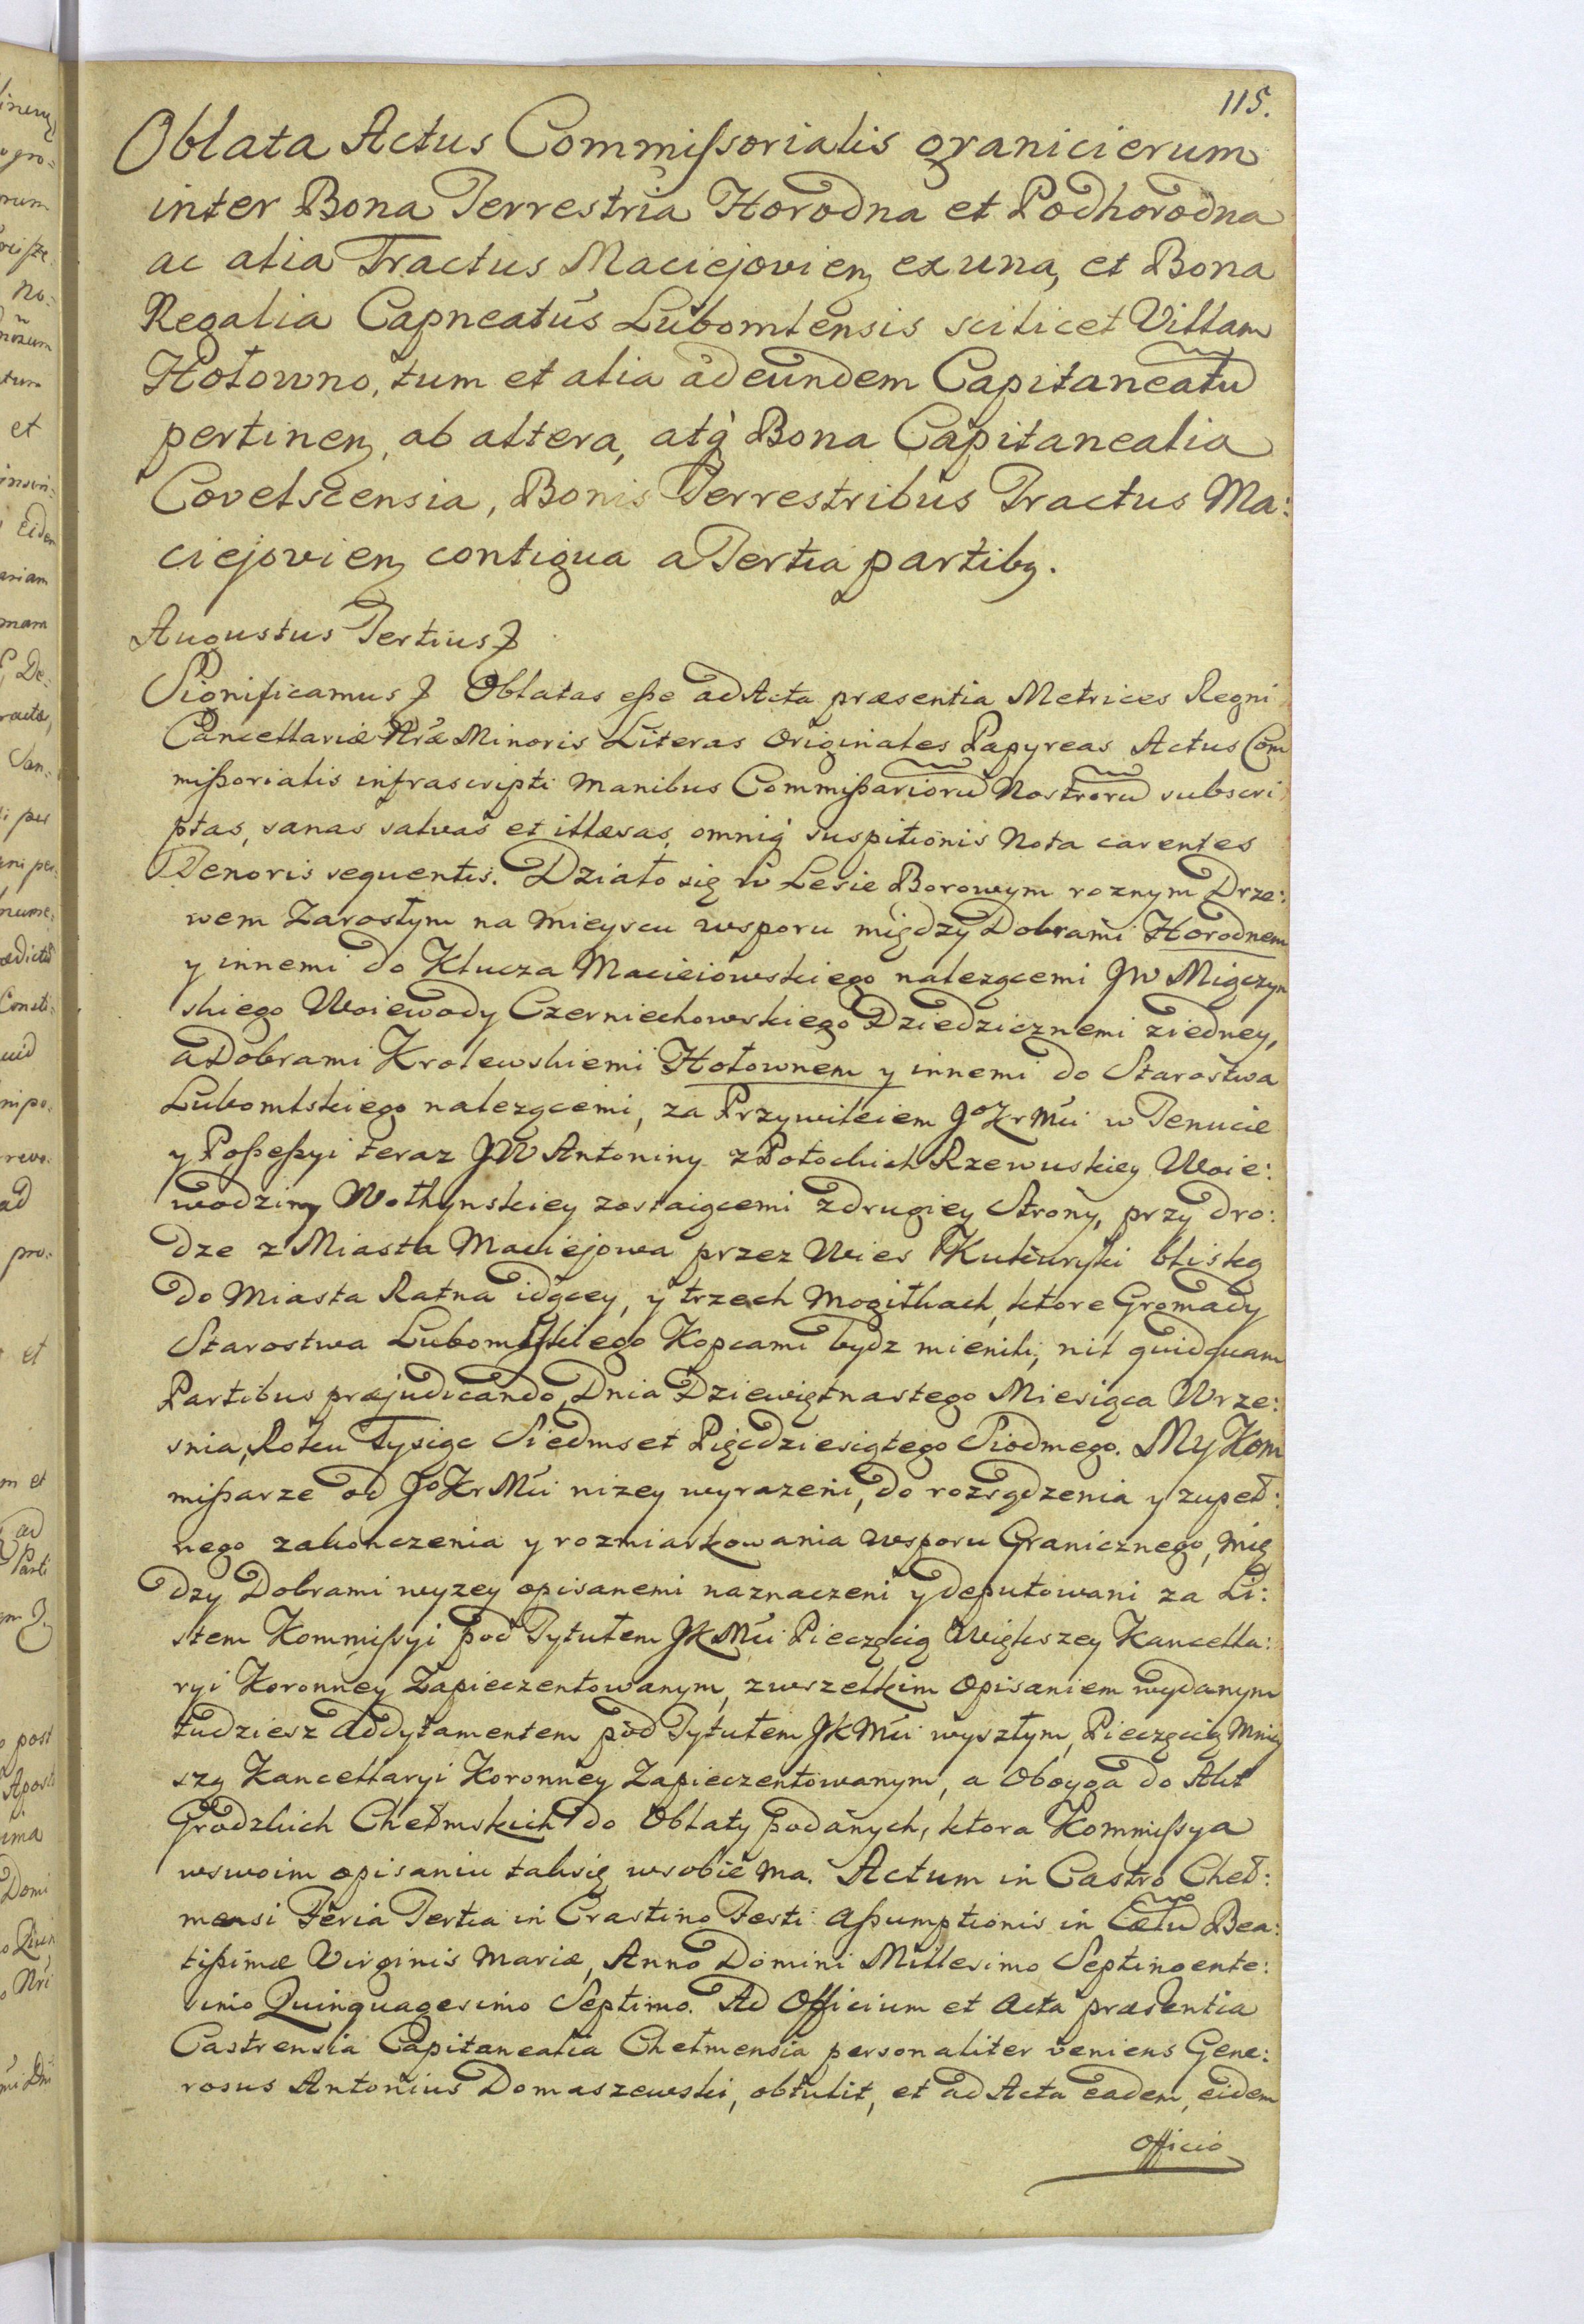 115.
Oblata Actus Commißorialis granicierum
inter Bona Terrestria Horodna et Podhorodna
ac alia Tractus Maciejovienz ex una, et Bona
Regalia Capneatus Lubomlensis scilicet Villam
Hołowno, tum et alia ad eundem Capitaneatũ
pertinenz, ab altera, atq̀ Bona Capitanealia
Covelscensia, Bonis Terrestribus Tractus Ma:
ciejovienz contigua a Tertia partibz.
Augustus Tertius
Significamus Oblatas eße ad Acta præsentia Metrices Regni
Cancellariæ Nræ Minoris Literas Originales Papyreas Actus Com
mißorialis infrascripti Manibus Commißariorũ Nostrorũ subscri
ptas, sanas salvas et illæsas, omniq̀ suspitionis Nota carentes
Tenoris sequentis. Działo się w Lesie Borowym roznym Drze:
wem Zarosłym na mieyscu wsporu między Dobrami Horodnem
y innemi do Klucza Macieiowskiego nalezącemi JW Miączyn
skiego Woiewody Czerniechowskiego Dziedzicznemi ziedney,
a Dobrami Krolewskiemi Hołownem y innemi do Starostwa
Lubomlskiego nalezącemi, za Przywileiem JoKrMci w Tenucie
y Poßeßyi teraz JW Antoniny z Potockich Rzewuskiey Woie:
wodziny Wołhynskiey zostaiącemi zdrugiey Strony, przy dro:
dze z Miasta Maciejowa przez Wies bliską
do Miasta Ratna idącey, y trzech Mogiłkach, ktore Gromady
Starostwa Lubomlskiego Kopcami bydz mienili, nil quidquam
Partibus præjudicando, Dnia Dziewiętnastego Miesiąca Wrze:
snia, Roku Tysiąc Siedmset Pięcdziesiątego Siodmego. My Kom
mißarze od JoKrMci nizey wyrazeni, do rozsądzenia y zupeł:
nego zakonczenia y rozmiarkowania wsporu Granicznego, mię
dzy Dobrami wyzey opisanemi naznaczeni y deputowani za Li:
stem Kommißyi pod Tytułem JKMci Pieczęcią Większey Kancella:
ryi Koronney Zapieczentowanym, zwszelkim Opisaniem wydanym
tudziesz Addytamentem pod Tytułem JKMci wyszłym, Pieczęcią Mniey
szą Kancellaryi Koronney Zapieczentowanym, a Oboyga do Akt
Grodzkich Chełmskich do Oblaty podanych, ktora Kommißya
wswoim opisaniu taksię wsobie ma. Actum in Castro Cheł:
mensi Feria Tertia in Crastino Festi Aßumptionis in Cælũ Bea:
tißimæ Virginis Mariæ, Anno Domini Millesimo Septingente:
simo Quinquagesimo Septimo. Ad Officium et Acta præsentia
Castrensia Capitanealia Chełmensia personaliter veniens Gene:
rosus Antonius Domaszewski, obtulit, et ad Acta eadem, eidem
Officio